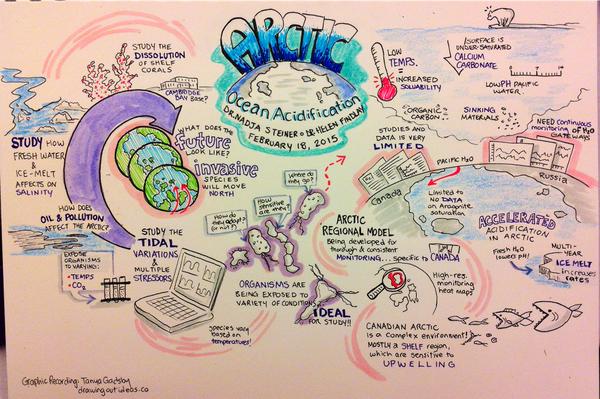 ARCTIC
Ocean Acidification
DR. NADJA STEINER & DR. HELEN FINDLAY
FEBRUARY 18, 2015
STUDY THE
DISSOLUTION
OF SHELF
CORALS
CAMBRIDGE
BAY BASE?
STUDY HOW
FRESH WATER
& ICE-MELT
AFFECTS ON
SALINITY
WHAT DOES THE
future
LOOK LIKE?
invasive
SPECIES
WILL MOVE
NORTH
HOW DOES
OIL & POLLUTION
AFFECT THE ARCTIC?
EXPOSE
ORGANISMS
TO VARYING:
• TEMPS
• CO2
STUDY THE
TIDAL
VARIATIONS
& MULTIPLE
STRESSORS
species vary
based on
temperatures!
How do
they adapt?
(or not?)
How
sensitive
are they?
Where do
they go?
ORGANISMS ARE
BEING EXPOSED TO
VARIETY OF CONDITIONS
IDEAL
FOR STUDY!!
LOW
TEMPS.
=
INCREASED
SOLUABILITY
SURFACE IS
UNDER-SATURATED
CALCIUM
CARBONATE
LOW PH PACIFIC
WATER
ORGANIC
CARBON
SINKING
MATERIALS
NEED continuous
monitoring of H2O
STUDIES AND
DATA IS VERY
LIMITED
PACIFIC H2O
Canada
Russia
Limited to
NO DATA
on Aragonite
saturation
ACCELERATED
ACIDIFICATION
IN ARCTIC
Fresh H2O
lowers pH!
MULTI-
YEAR
ICE MELT
increases
rates
ARCTIC
REGIONAL MODEL
Being developed for
thorough & consistent
MONITORING... specific to CANADA
High-res.
monitoring
heat maps
CANADIAN ARCTIC
is a complex environment!
MOSTLY a SHELF region,
which are sensitive to
UPWELLING
Graphic Recording: Tanya Gadsby
drawingoutideas.ca